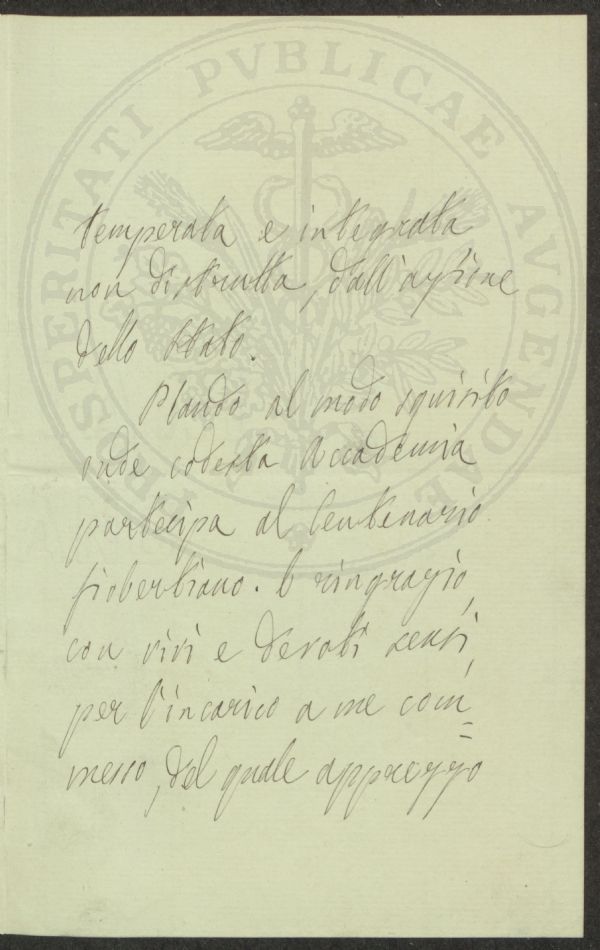 PROSPERITATI PVBLICAE AVGENDAE
temperata e integrata
non distrutta, dall'azione
dello Stato.
Plaudo al modo squisito
onde codesta Accademia
partecipa al Centenario
giobertiano. E ringrazio,
con vivi e devoti sensi,
per l'incarico a me com=
messo, del quale apprezzo